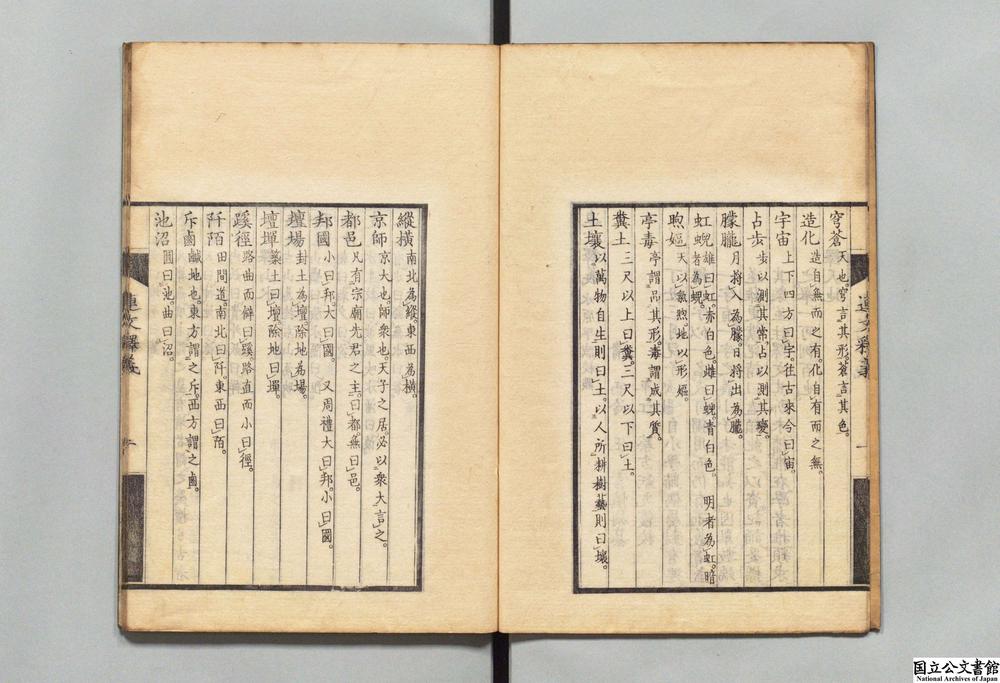 穹蒼 天也。穹言其形。蒼言其色。
造化 造自無而之有。化自有而之無。
宇宙 上下四方曰宇。往古來今曰宙。
占步 步以測其常。占以測其變。
朦朧 月將入為朦。日將出為朧。
虹蜺 雄曰虹。赤白色。雌曰蜺。青白色。 明者為虹。暗者為蜺。
煦嫗 天以氣煦。地以形嫗。
亭毒 亭謂品其形。毒謂成其質。
糞土 三尺以上曰糞。三尺以下曰土。
土壤 以萬物自生則曰土。以人所耕樹藝則曰壤。
連文釋義
一
縱橫 南北為縱。東西為橫。
京師 京大也。師衆也。天子之居必以衆大言之。
都邑 凡有宗廟先君之主曰都。無曰邑。
邦國 小曰邦。大曰國。 又周禮大曰邦。小曰國。
壇場 封土為壇。除地為場。
壇墠 築土曰壇。除地曰墠。
蹊徑 路曲而僻曰蹊。路直而小曰徑。
阡陌 田間道。南北曰阡。東西曰陌。
斥鹵 鹹地也。東方謂之斥。西方謂之鹵。
池沼 圓曰池。曲曰沼。
連文釋義
国立公文書館
National Archives of Japan